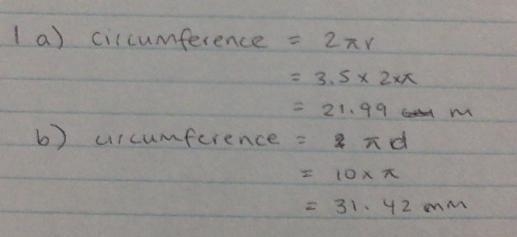 1 a) circumference = 2πr
= 3.5 × 2×π
= 21.99 m
b) circumference = πd
= 10×π
= 31.42 mm